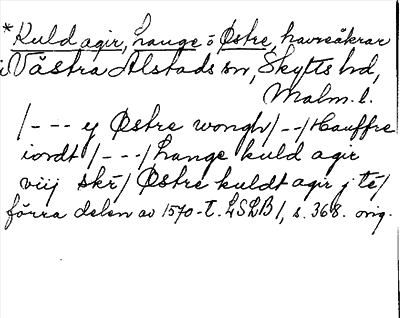 *Kuld agir, Lange o Østre, havreåkrar
i Västra Alstads sn, Skytts hd,
Malm. l.
/--- ej Østre wongh/--/Hauffre
iordt/---/Lange kuld agir
viij skr/Østre kuldt agir j te/
förra delen av 1570-t. LSLB1, s. 368. orig.